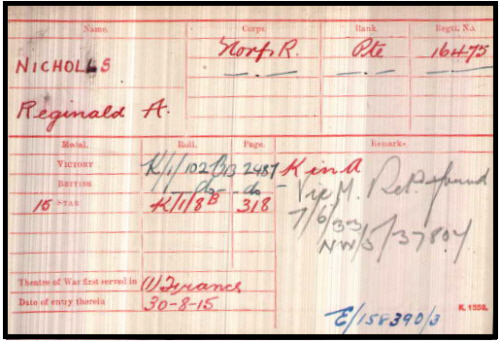 Name. Corps. Rank. Regtl. No.
NICHOLLS Norf. R. Pte 16475
Reginald A.
Medal. Roll. Page. Remarks.
VICTORY K/1/102 B13 2487 K in A
BRITISH do do Vic M. Ret.
15 STAR K/1/8B 318 7/6/33
NW/5/37804
Theatre of War first served in (1) France
Date of entry therein 30-8-15
E/158390/3 K. 1358.